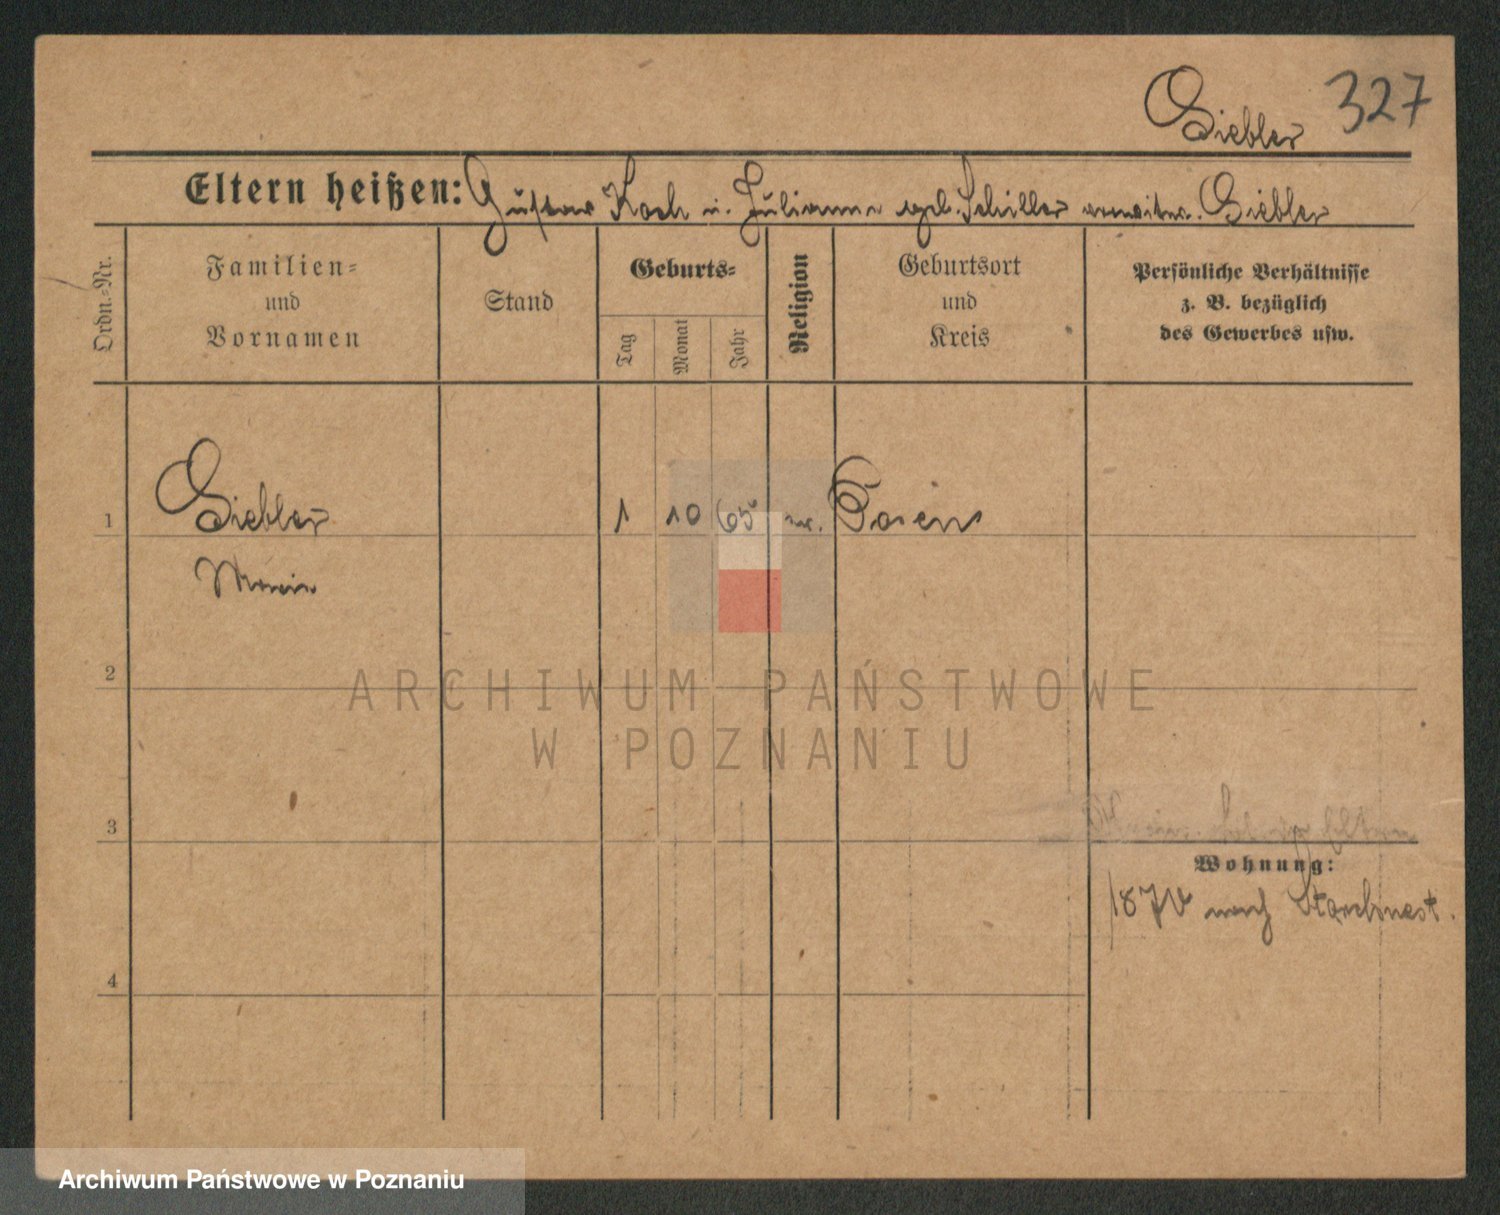 Giebler 327
Eltern heißen: Gustav Koch u. Julianne geb. Schiller verwitw. Giebler
Ordn.-Nr.
Familien-
und
Vornamen
Stand
Geburts-
Tag
Monat
Jahr
Religion
Geburtsort
und
Kreis
Persönliche Verhältnisse
z. B. bezüglich
des Gewerbes usw.
1 Giebler 1 10 65 ev. Posen
Marie
2
ARCHIWUM PAŃSTWOWE
W POZNANIU
3
Wohnung:
1870 nach Storchnest.
4
Archiwum Państwowe w Poznaniu